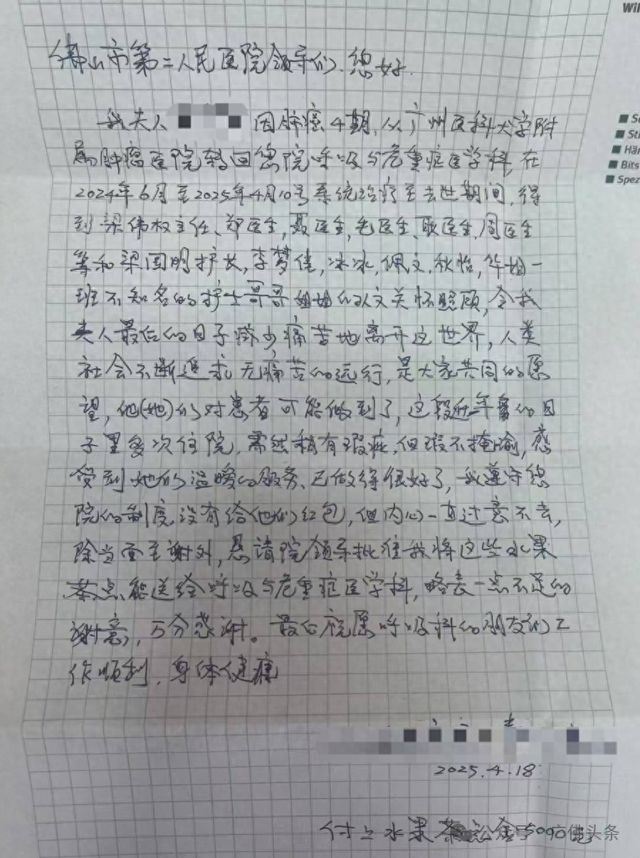 佛山市第二人民医院领导们、您好
我夫人 因肺癌4期,从广州医科大学附
属肿瘤医院转回您院呼吸与危重症医学科,在
2024年6月至2025年4月10号系统治疗至去世期间,得
到梁伟权主任、郑医生,聂医生,毛医生,耿医生,周医生
等和梁图明护长,李梦佳,冰冰,佩文,秋怡,华姐一
班不知名的护士哥哥姐姐的人文关怀照顾,令我
夫人最后的日子够少痛苦地离开这世界,人类
社会不断追求无痛苦的远行,是大家共同的愿
望,他(她)们对患者可能做到了,这段近年的日
子里多次住院,虽然稍有瑕疵,但瑕不掩瑜,感
受到她们温暖的服务、已做得很好了,我遵守您
院的制度没有给他们红包,但内心一直过意不去,
除当面至谢外,恳请院领导批准我将这些水果
茶点能送给呼吸与危重症医学科,略表一点不足的
谢意,万分感谢。最后祝愿呼吸科的朋友们工
作顺利,身体健康
2025.4.18
付上水果 佛头条
Wi
S
St
Här
Bits
Spez